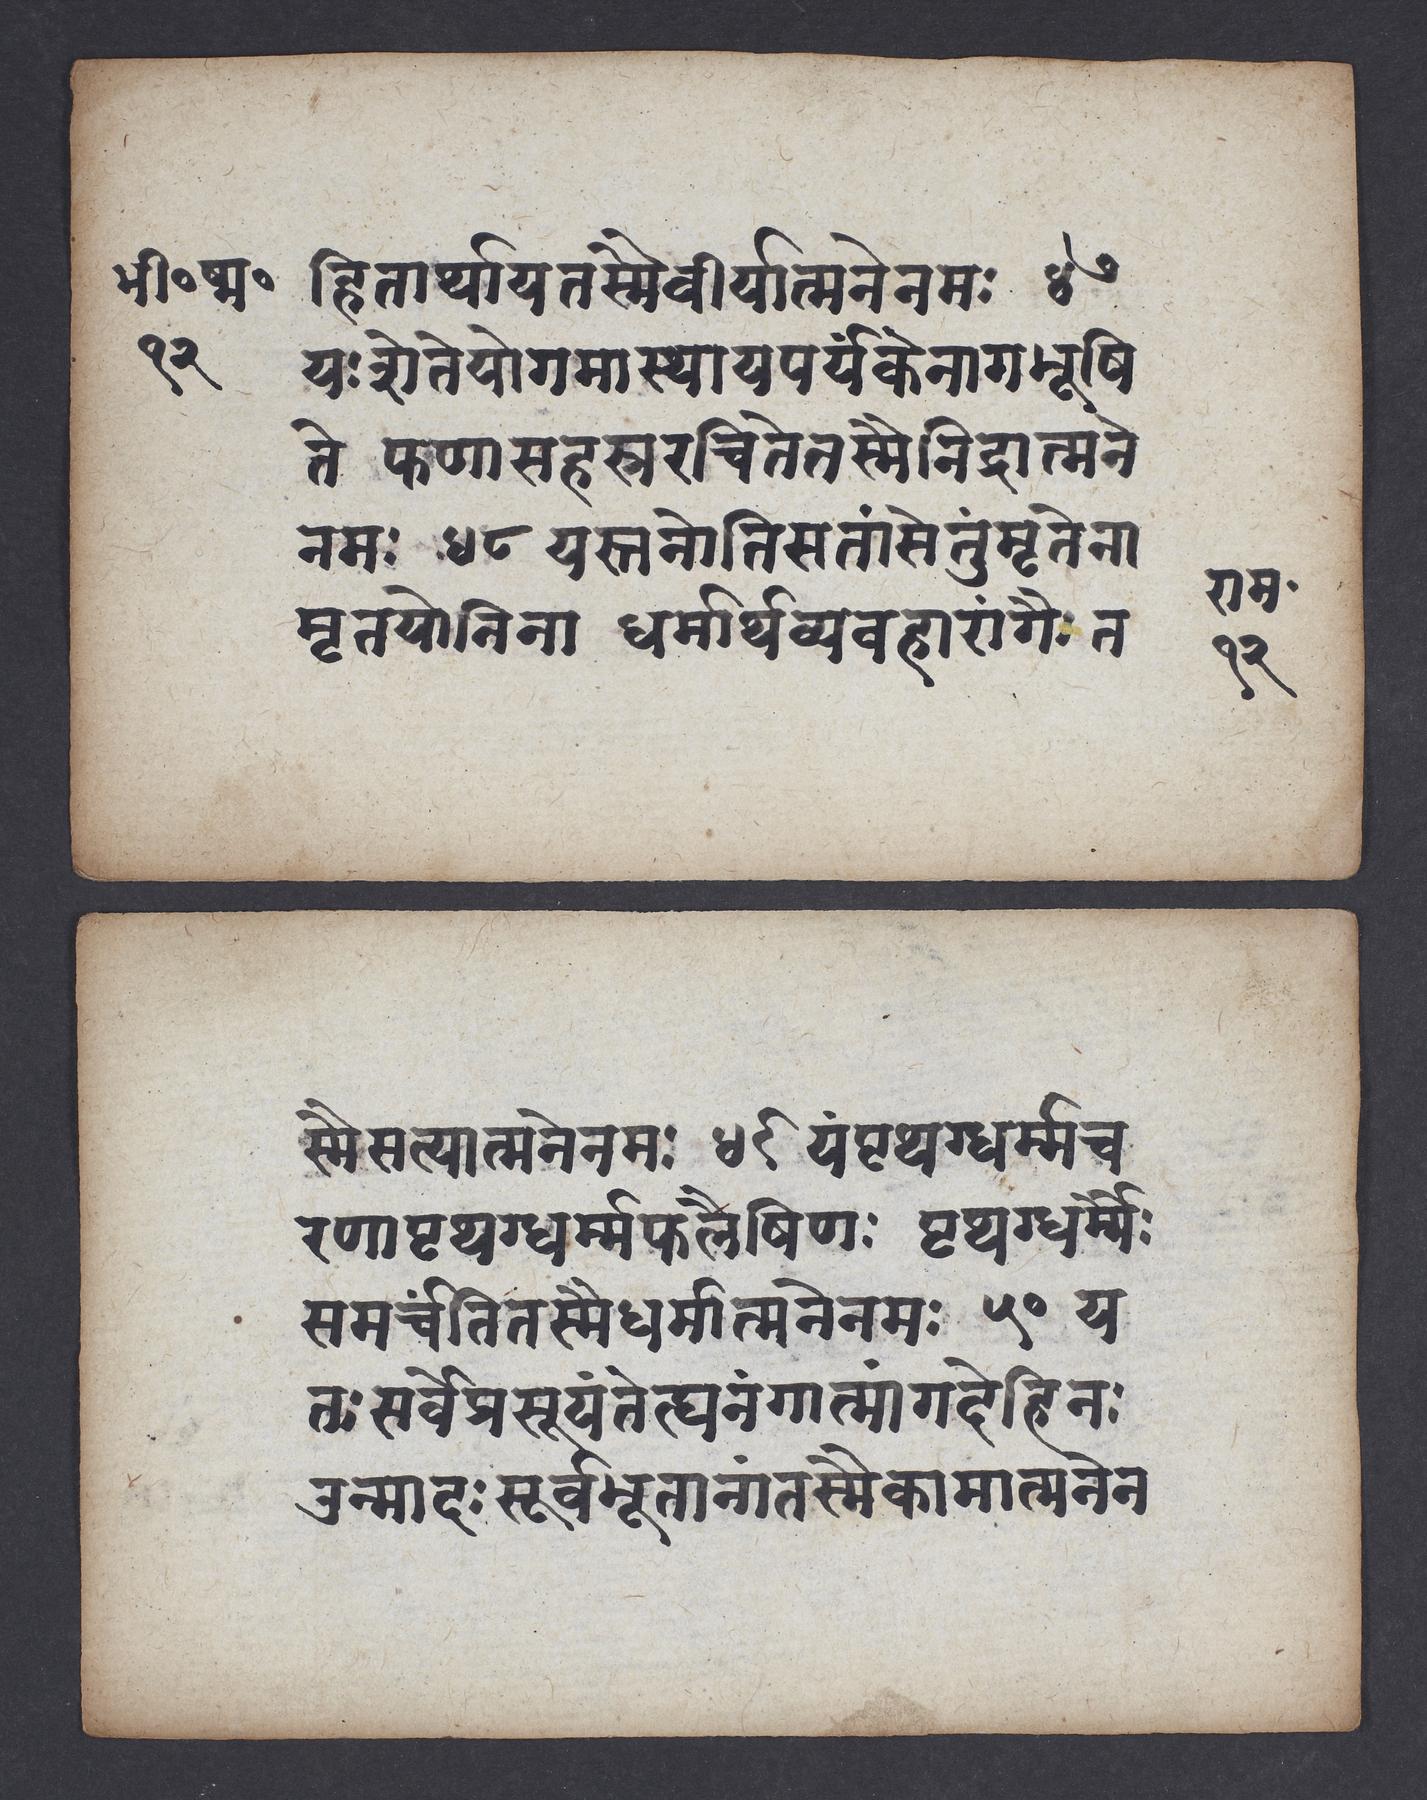 भी॰ष्म॰
१२
हितार्थायतस्मैवीर्यात्मनेनमः ४७
यःशेतेयोगमास्थायपर्यंकेनागभूषि
ते फणासहस्ररचितेतस्मैनिद्रात्मने
नमः ४८ यस्तनोतिसतांसेतुंमृतेना
मृतयोनिना धर्मार्थव्यवहारांगैः त
राम॰
१२
स्मैसत्यात्मनेनमः ४९ यंपृथग्धर्म्मच
रणापृथग्धर्म्मफलैषिणः पृथग्धर्म्मैः
समर्चंतितस्मैधर्मात्मनेनमः ५० य
तःसर्वेप्रसूयंतेत्घनंगात्मांगदेहिनः
उन्मादःसूर्वभूतानांतस्मैकामात्मनेन